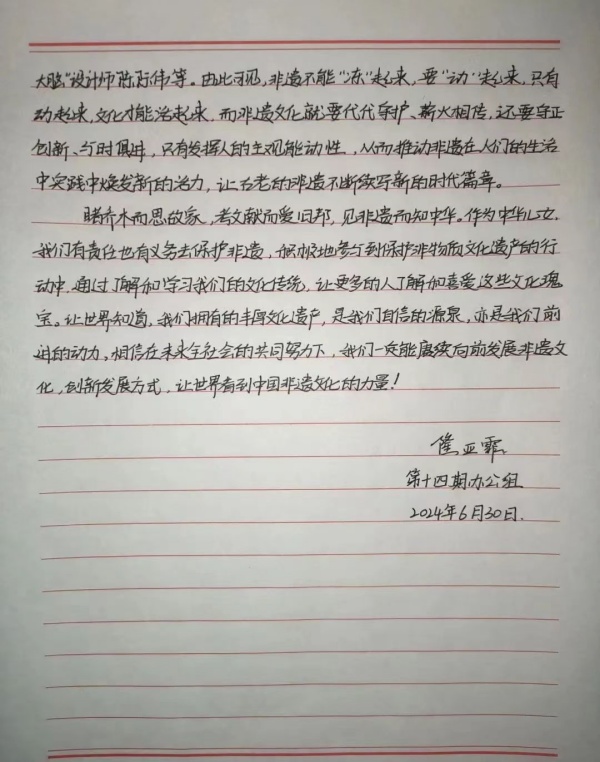 大脑"设计师陈际伟等。由此可见，非遗不能"冻"起来，要"动"起来，只有
动起来，文化才能活起来，而非遗文化就要代代守护、薪火相传，还要守正
创新、与时俱进，只有发挥人的主观能动性，从而推动非遗在人们的生活
中实践中焕发新的活力，让古老的非遗不断续写新的时代篇章。
睹乔木而思故家，考文献而爱旧邦，见非遗而知中华。作为中华儿女，
我们有责任也有义务去保护非遗，积极地参与到保护非物质文化遗产的行
动中，通过了解和学习我们的文化传统，让更多的人了解和喜爱这些文化瑰
宝。让世界知道，我们拥有的丰厚文化遗产，是我们自信的源泉，亦是我们前
进的动力，相信在未来全社会的共同努力下，我们一定能赓续向前发展非遗文
化，创新发展方式，让世界看到中国非遗文化的力量！
亚霏
第十四期办公组
2024年6月30日.